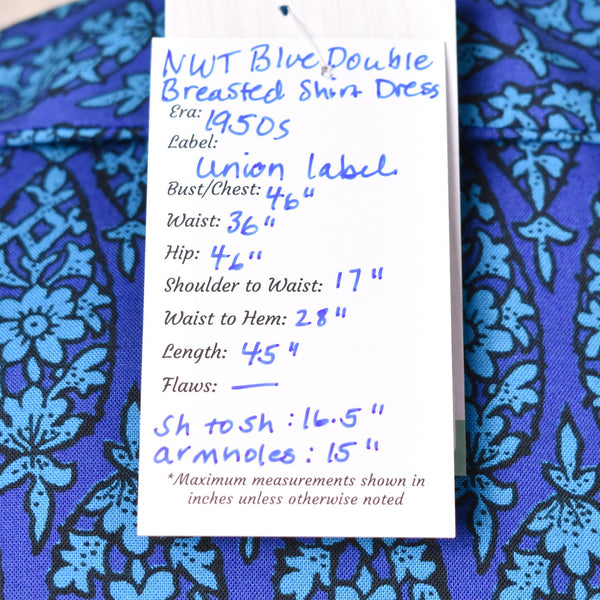 NWT Blue Double
Breasted Shirt Dress
Era: 1950s
Label:
Union label
Bust/Chest: 46"
Waist: 36"
Hip: 46"
Shoulder to Waist: 17"
Waist to Hem: 28"
Length: 45"
Flaws: —
Sh to sh: 16.5"
armholes: 15"
*Maximum measurements shown in
inches unless otherwise noted